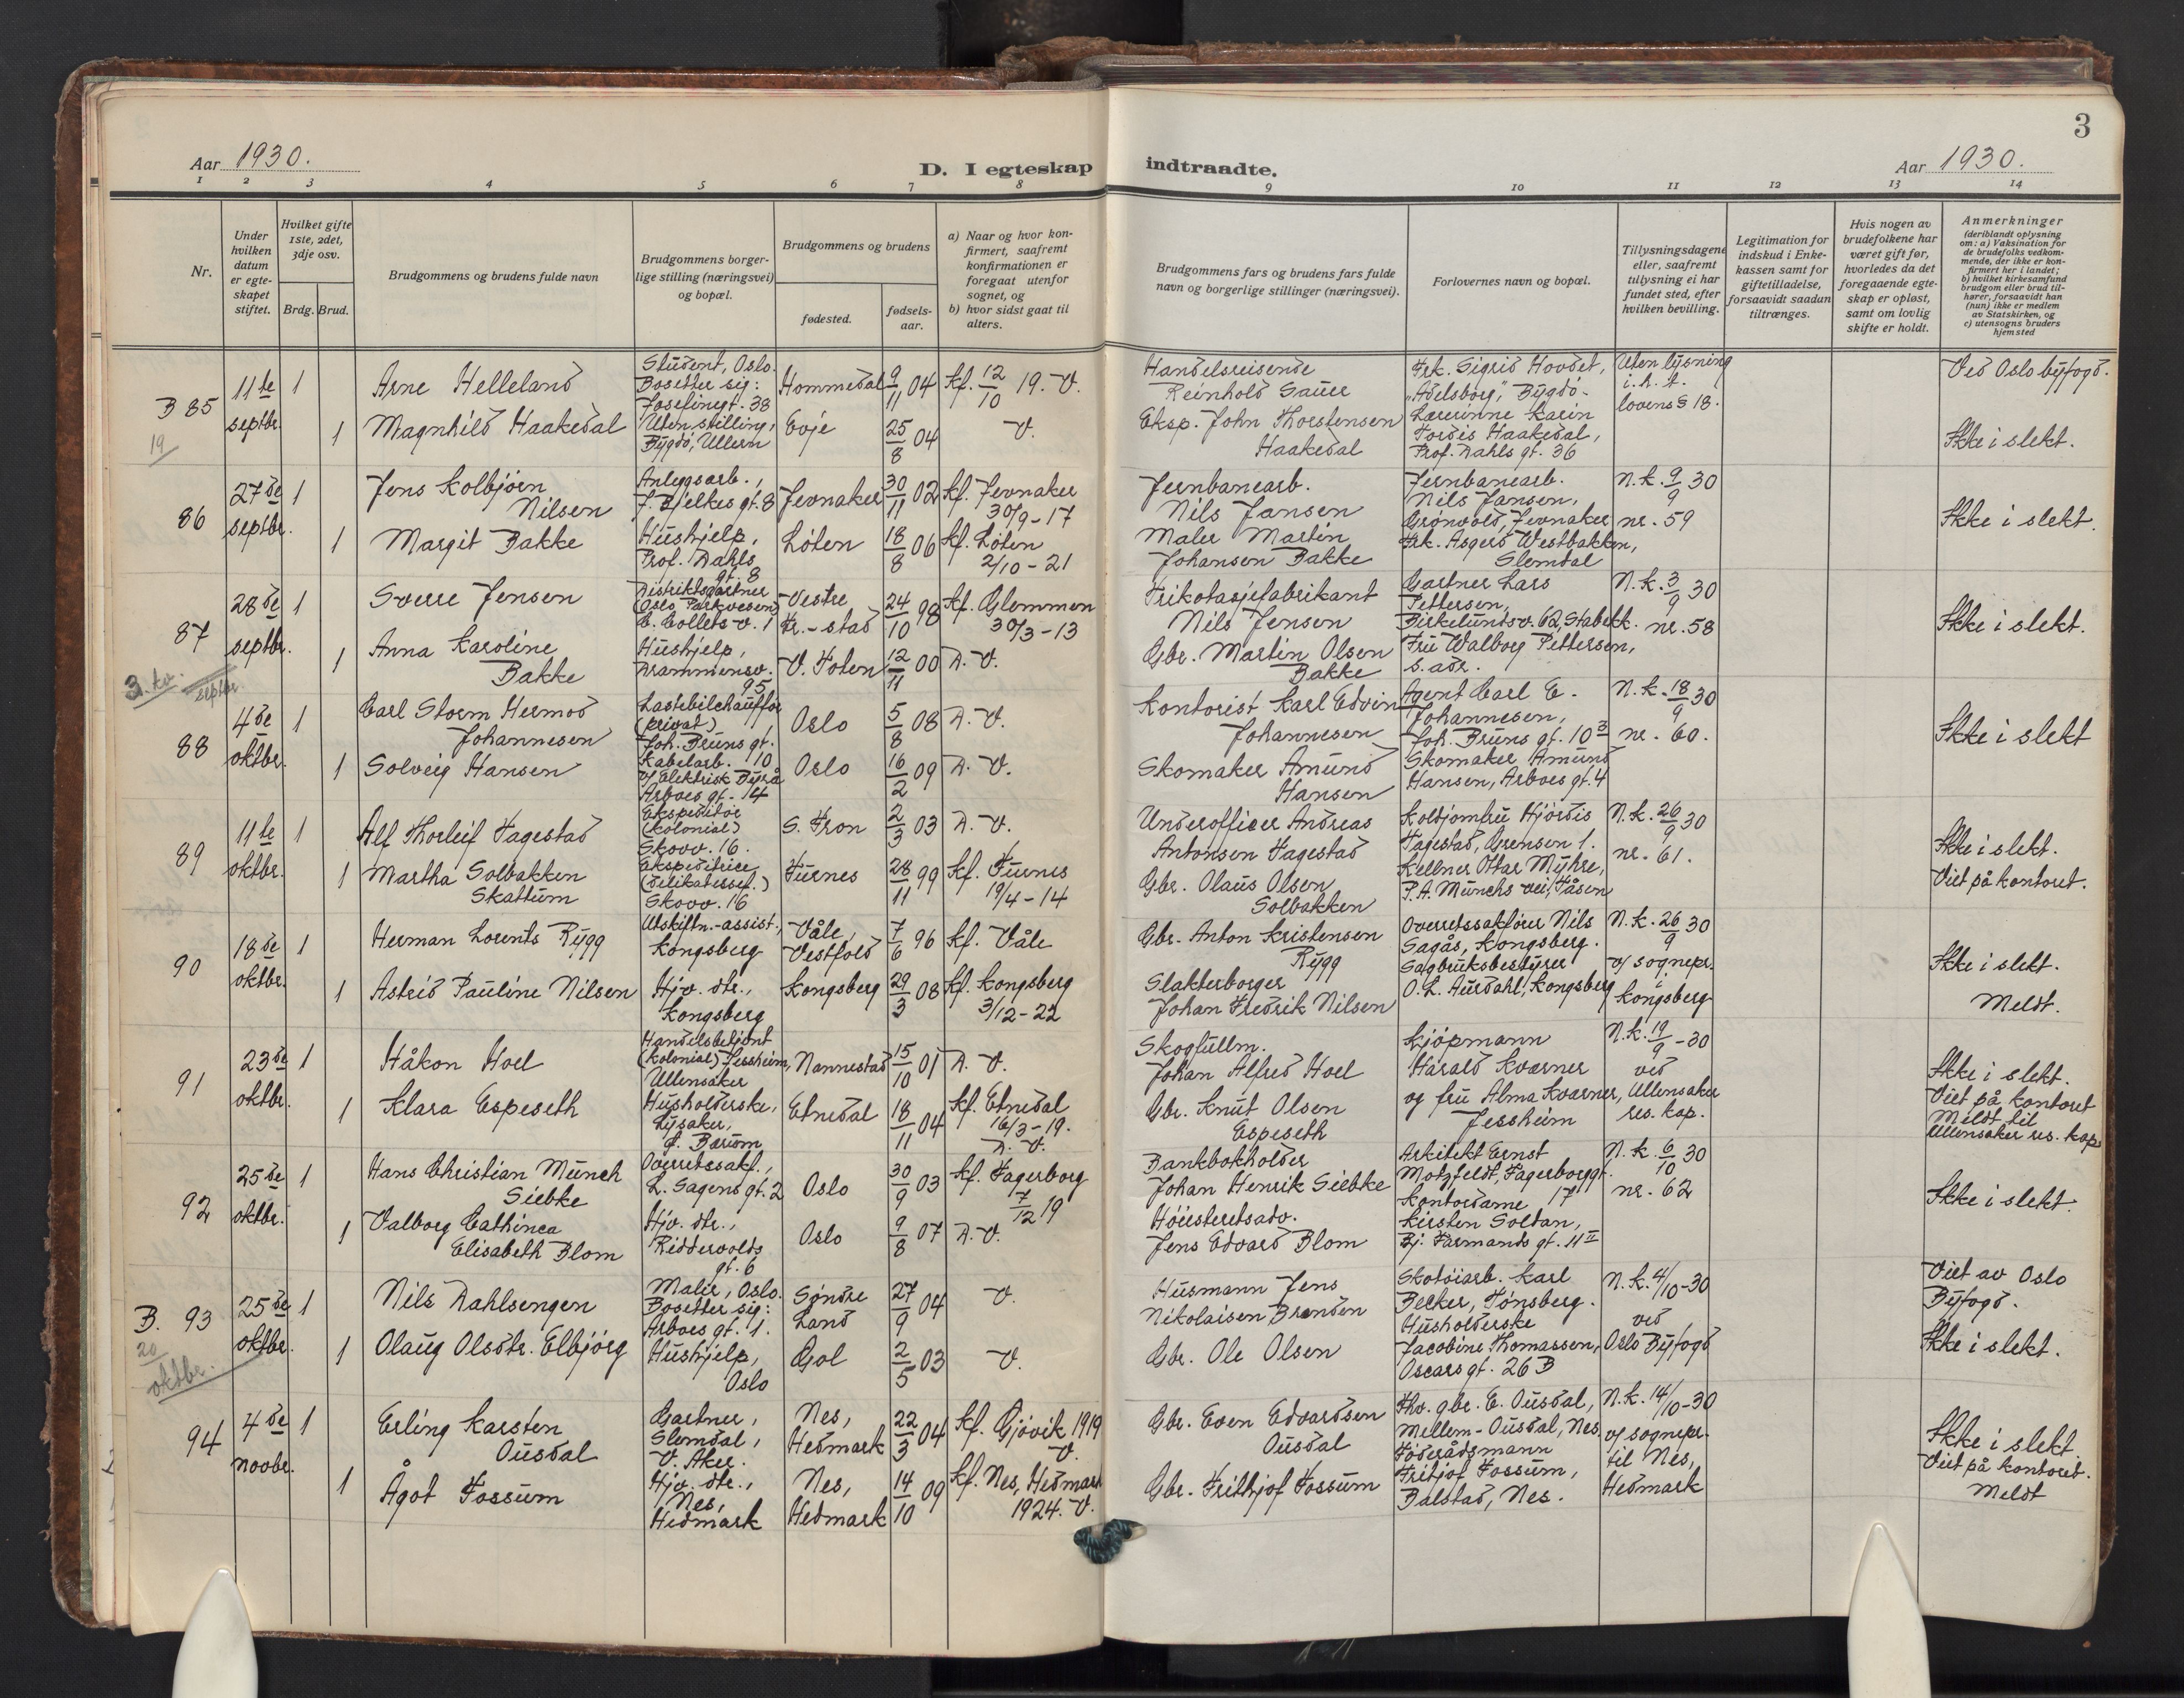 3
Aar 1930.
D. I egteskap indtraadte.
Aar 1930.
1 2 3 4 5 6 7 8 9 10 11 12 13 14
Nr.
Under hvilken datum er egte-skapet stiftet.
Hvilket gifte 1ste, 2det, 3dje osv.
Brdg. Brud.
Brudgommens og brudens fulde navn
Brudgommens borger-lige stilling (næringsvei) og bopæl.
Brudgommens og brudens
fødested.
fødsels-aar.
a) Naar og hvor kon-firmert, saafremt konfirmationen er foregaat utenfor sognet, og
b) hvor sidst gaat til alters.
Brudgommens fars og brudens fars fulde navn og borgerlige stillinger (næringsvei).
Forlovernes navn og bopæl.
Tillysningsdagene eller, saafremt tillysning ei har fundet sted, efter hvilken bevilling.
Legitimation for indskud i Enke-kassen samt for giftetilladelse, forsaavidt saadan tiltrænges.
Hvis nogen av brudefolkene har været gift før, hvorledes da det foregaaende egte-skap er opløst, samt om lovlig skifte er holdt.
Anmerkninger (deriblandt oplysning om: a) Vaksination for de brudefolks vedkom-mende, der ikke er kon-firmert her i landet; b) hvilket kirkesamfund brudgom eller brud til-hører, forsaavidt han (hun) ikke er medlem av Statskirken, og c) utensogns bruders hjemsted
B 85 19
11te septbr.
1 Arne Helleland
Student, Oslo. Bosetter sig: Josefinegt. 38
Hommedal 9/11 04 Kf. 12/10 19. V.
Handelsreisende Reinhold Sauer
Frk. Sigrid Hovdet, "Adelsborg", Bygdö.
Uten lysning i. h. t. lovens § 18.
Ved Oslo byfogd.
1 Magnhild Haakedal
Uten stilling, Bygdö, Ullern
Evje 25/8 04 V.
Eksp. John Thorstensen Haakedal
Lærerinne Karin Tordis Haakedal, Prof. Dahls gt. 36
Ikke i slekt.
86
27de septbr.
1 Jens Kolbjörn Nilsen
Anleggsarb., J. Bjelkes gt. 8
Jevnaker 30/11 02 Kf. Jevnaker 30/9-17
Jernbanearb. Nils Jansen
Jernbanearb. Nils Jansen, Grönvold, Jevnaker
N.k. 9/9 30 nr. 59
Ikke i slekt.
1 Margit Bakke
Hushjelp, Prof. Dahls gt. 8
Löten 18/8 06 Kf. Löten 2/10-21
Maler Martin Johansen Bakke
Frk. Asgerd Westbakken, Slemdal
87
28de septbr.
1 Sverre Jensen
Distriktsgartner (Oslo Parkvesen) C. Colletts v. 1
Vestre Fr.-stad 24/10 98 Kf. Glemmen 30/3-13
Trikotasjefabrikant Nils Jensen
Gartner Lars Pettersen, Birkelunds v. 62, Stabekk.
N.k. 3/9 30 nr. 58
Ikke i slekt.
1 Anna Karoline Bakke
Hushjelp, Drammensv. 95
V. Toten 12/11 00 D. V.
Gbr. Martin Olsen Bakke
Fru Walborg Pettersen, s. adr.
3. kv. septbr.
88
4de oktbr.
1 Carl Storm Hermod Johannesen
Lastebilchauffør (privat) Joh. Bruns gt. 10
Oslo 5/8 08 D. V.
Kontorist Karl Edvin Johannesen
Agent Carl E. Johannesen, Joh. Bruns gt. 10 III
N.k. 18/9 30 nr. 60.
Ikke i slekt
1 Solveig Hansen
Kabelarb. v/ Elektrisk Byrå Arboes gt. 14
Oslo 16/2 09 D. V.
Skomaker Amund Hansen
Skomaker Amund Hansen, Arboes gt. 4
89
11te oktbr.
1 Alf Thorleif Fagestad
Ekspeditör (kolonial) Skovv. 16.
S. Fron 2/3 03 D. V.
Underofficer Andreas Antonsen Fagestad
Koldjomfru Hjördis Fagestad, Grensen 1.
N.k. 26/9 30 nr. 61.
Ikke i slekt. Viet på kontoret.
1 Martha Solbakken Skattum
Ekspeditrice (delikatessef.) Skovv. 16
Furnes 28/11 99 Kf. Furnes 19/4-14
Gbr. Olaus Olsen Solbakken
Kellner Ottar Myhre, P. A. Munchs vei, Tåsen
90
18de oktbr.
1 Herman Lorents Rygg
Utskiftn.-assist., Kongsberg
Våle, Vestfold 7/6 96 Kf. Våle
Gbr. Anton Kristensen Rygg
Overretssakförer Nils Sagås, Kongsberg.
N.k. 26/9 30 v/ sognepr. i Kongsberg
Ikke i slekt. Meldt.
1 Astrid Pauline Nilsen
Hjv. dtr., Kongsberg
Kongsberg 29/3 08 Kf. Kongsberg 3/12-22
Slakterborger Johan Fredrik Nilsen
Sagbruksbestyrer O. L. Aurdahl, Kongsberg
91
23de oktbr.
1 Håkon Hoel
Handelsbetjent (kolonial) Jessheim, Ullensaker
Nannestad 15/10 01 D. V.
Skogfullm. Johan Alfred Hoel
Kjöpmann Harald Kværner og fru Alma Kværner, Jessheim
N.k. 19/9-30 ved Ullensaker res. kap.
Ikke i slekt. Viet på kontoret Meldt til Ullensaker res. kap.
1 Klara Espeseth
Husholderske, Lysaker, Ö. Bærum
Etnedal 18/11 04 Kf. Etnedal 16/3-19. D. V.
Gbr. Knut Olsen Espeseth
92
25de oktbr.
1 Hans Christian Munch Siebke
Overretssakf., L. Sagens gt. 2
Oslo 30/9 03 Kf. Fagerborg 7/12 19
Bankbokholder Johan Henrik Siebke
Arkitekt Ernst Motzfeldt, Fagerborggt. 17
N.k. 6/10 30 nr. 62
Ikke i slekt.
1 Valborg Cathinca Elisabeth Blom
Hjv. dtr., Riddervolds gt. 6
Oslo 9/8 07 D. V.
Höiesteretsadv. Jens Edvard Blom
Kontordame Kirsten Soltan, Bj. Farmands gt. 11 II
B. 93 20 oktbr.
25de oktbr.
1 Nils Dahlsengen
Maler, Oslo. Bosetter sig: Arboes gt. 1.
Söndre Land 27/9 04 V.
Husmann Jens Nikolaisen Brenden
Skotöiarb. Karl Becker, Tönsberg.
N.k. 4/10-30 ved Oslo Byfogd
Viet av Oslo Byfogd.
1 Olaug Olsdtr. Elbjörg
Hushjelp, Oslo
Gol 2/5 03 V.
Gbr. Ole Olsen
Husholderske Jacobine Thomassen, Oscars gt. 26 B
Ikke i slekt.
94
4de novbr.
1 Erling Karsten Ousdal
Gartner, Slemdal, V. Aker.
Nes, Hedmark 22/3 04 Kf. Gjövik 1919 V.
Gbr. Even Edvardsen Ousdal
Fhv. gbr. E. Ousdal, Mellem-Ousdal, Nes.
N.k. 14/10-30 v/ sognepr. til Nes, Hedmark
Ikke i slekt. Viet på kontoret. Meldt
1 Ågot Fossum
Hjv. dtr., Nes, Hedmark
Nes, Hedmark 14/10 09 Kf. Nes, Hedmark 1924. V.
Gbr. Frithjof Fossum
Föderådsmann Fritjof Fossum, Balstad, Nes.